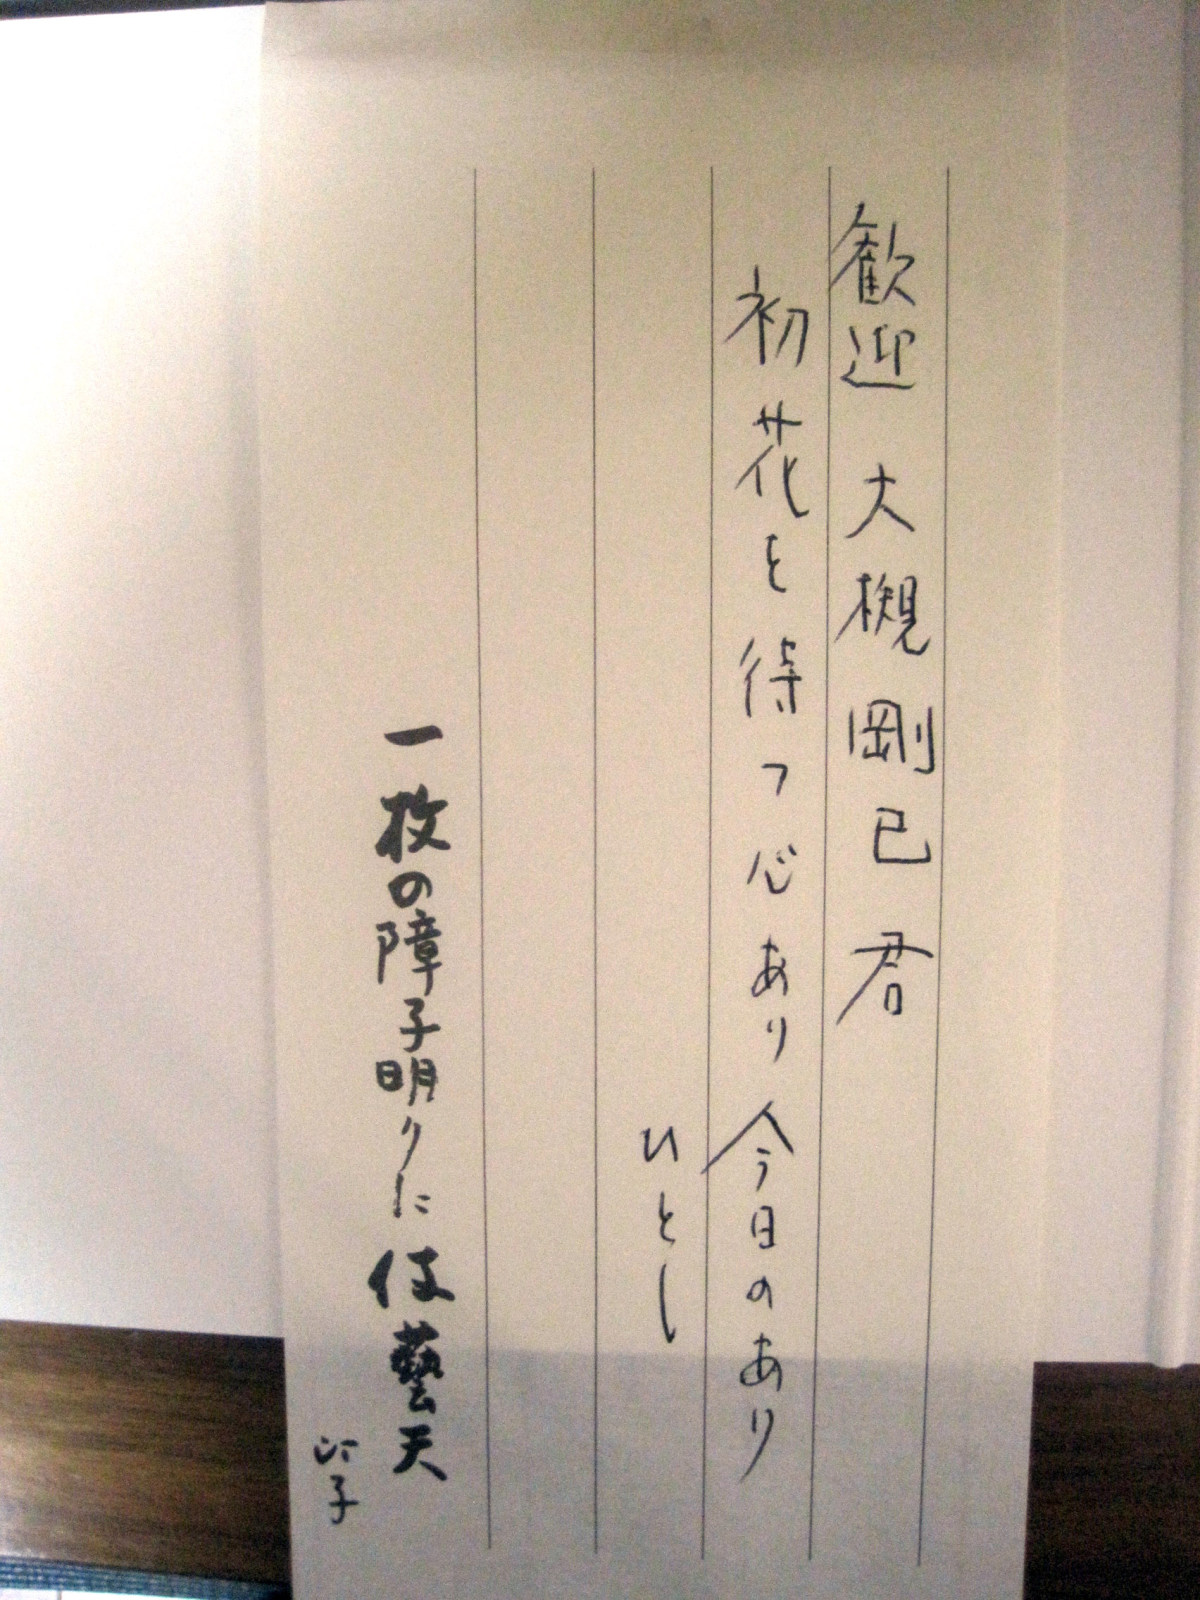 歓迎 大槻剛巳君
初花を待つ心あり今日のあり
ひとし
一枚の障子明りに伎藝天
汀子